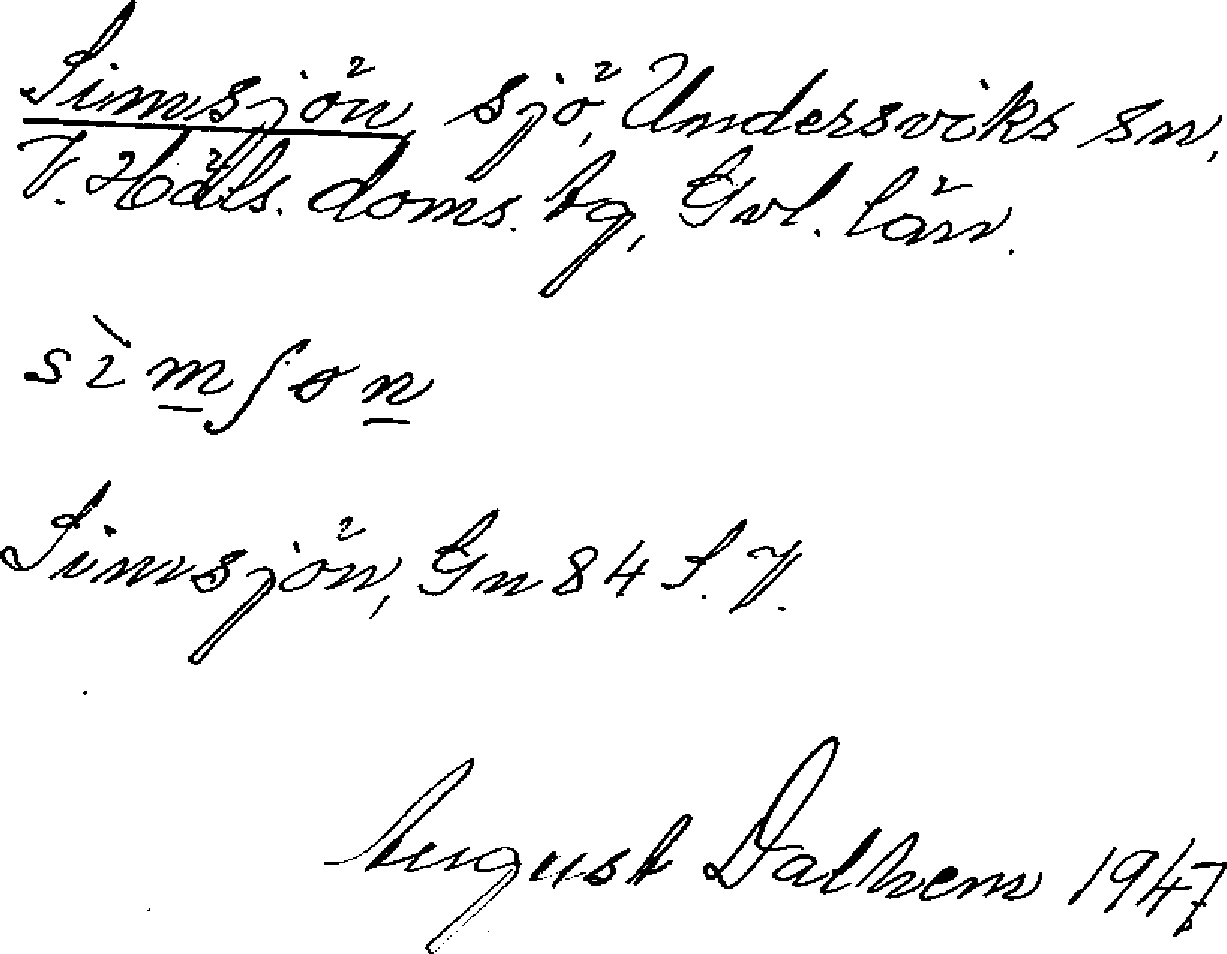 Simsjön, sjö, Undersviks sn,
V. Häls. doms. tg, Gvl. län.
sìm̲ʃon̲
Simsjön, Gn 84 S.V.
August Dalhem 1947